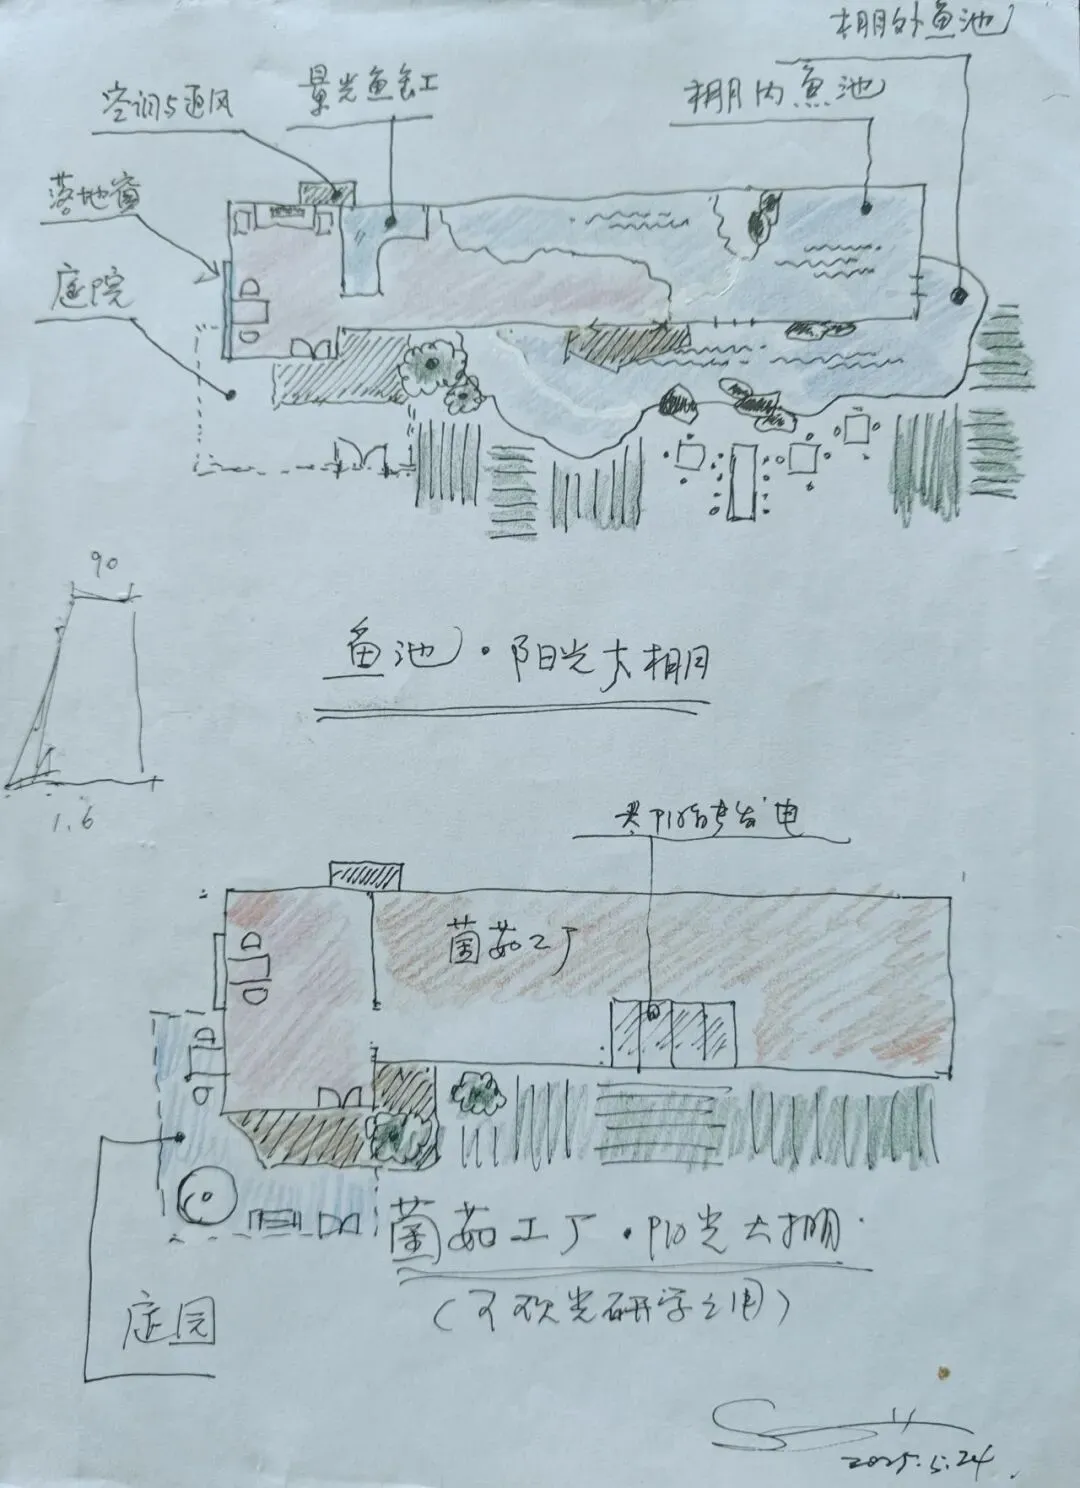 棚外鱼池
空调与通风
景光鱼缸
棚内鱼池
落地窗
庭院
90
鱼池·阳光大棚
1.6
发电
菌菇工厂
菌菇工厂·阳光大棚
(可观光研学之用)
庭园
2025.5.24